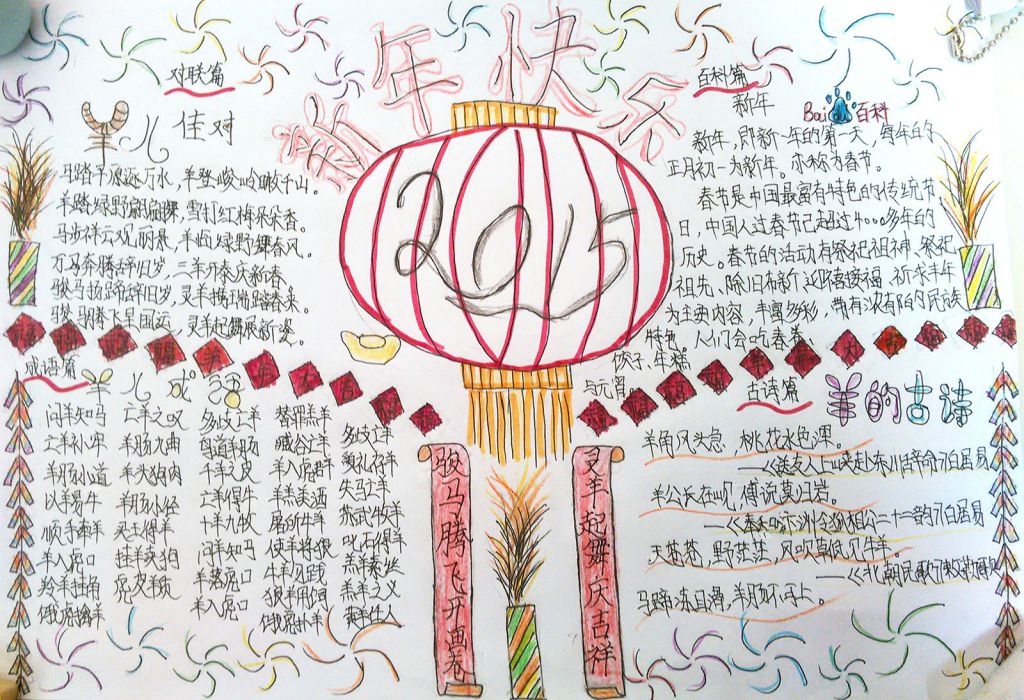 新年快乐
2015
对联篇
羊儿佳对
马踏平原逐万水，羊登峻岭瞰千山。
羊踏绿野翩翩舞，雪打红梅朵朵香。
马步祥云观丽景，羊临绿野舞春风。
万马奔腾辞旧岁，三羊开泰庆新春。
骏马扬蹄辞旧岁，灵羊携瑞踏春来。
骏马腾飞早国运，灵羊起舞展新姿。
百科篇
新年
Bai du 百科
新年，即新一年的第一天，每年的
正月初一为新年。亦称为春节。
春节是中国最富有特色的传统节
日，中国人过春节已超过4000多年的
历史。春节的活动有祭祀祖神、祭祀
祖先、除旧布新、迎禧接福、祈求丰年
为主要内容，丰富多彩，带有浓有的民族
特色。人们会吃春卷
饺子、年糕
与元宵。
成语篇
羊儿成语
问羊知马 亡羊之叹 多歧亡羊 替罪羔羊 多歧亡羊
亡羊补牢 羊肠九曲 鸟道羊肠 臧谷亡羊 羊
羊肠小道 羊头狗肉 千羊之皮 羊入虎群 失马亡羊
以羊易牛 羊肠小径 亡羊得牛 羊羔美酒 苏武牧羊
顺手牵羊 买王得羊 十羊九牧 屠所牛羊 叱石得羊
羊入虎口 挂羊卖狗 问羊知马 使羊将狼 羔羊素丝
羚羊挂角 虎皮羊质 羊落虎口 牛羊 羔羊之义
饿虎擒羊 羊入虎口 狼羊同饲
饿虎扑羊
骏马腾飞开画卷
灵羊起舞庆吉祥
古诗篇
羊的古诗
羊角风头急，桃花水色浑。
——《送友人上峡赴东川辞命》白居易
羊公长在岘，傅说莫归岩。
——《奉和 相公二十二韵》白居易
天苍苍，野茫茫，风吹草低见牛羊。
——《北朝民歌》敕勒歌
马蹄冻且滑，羊肠不可上。